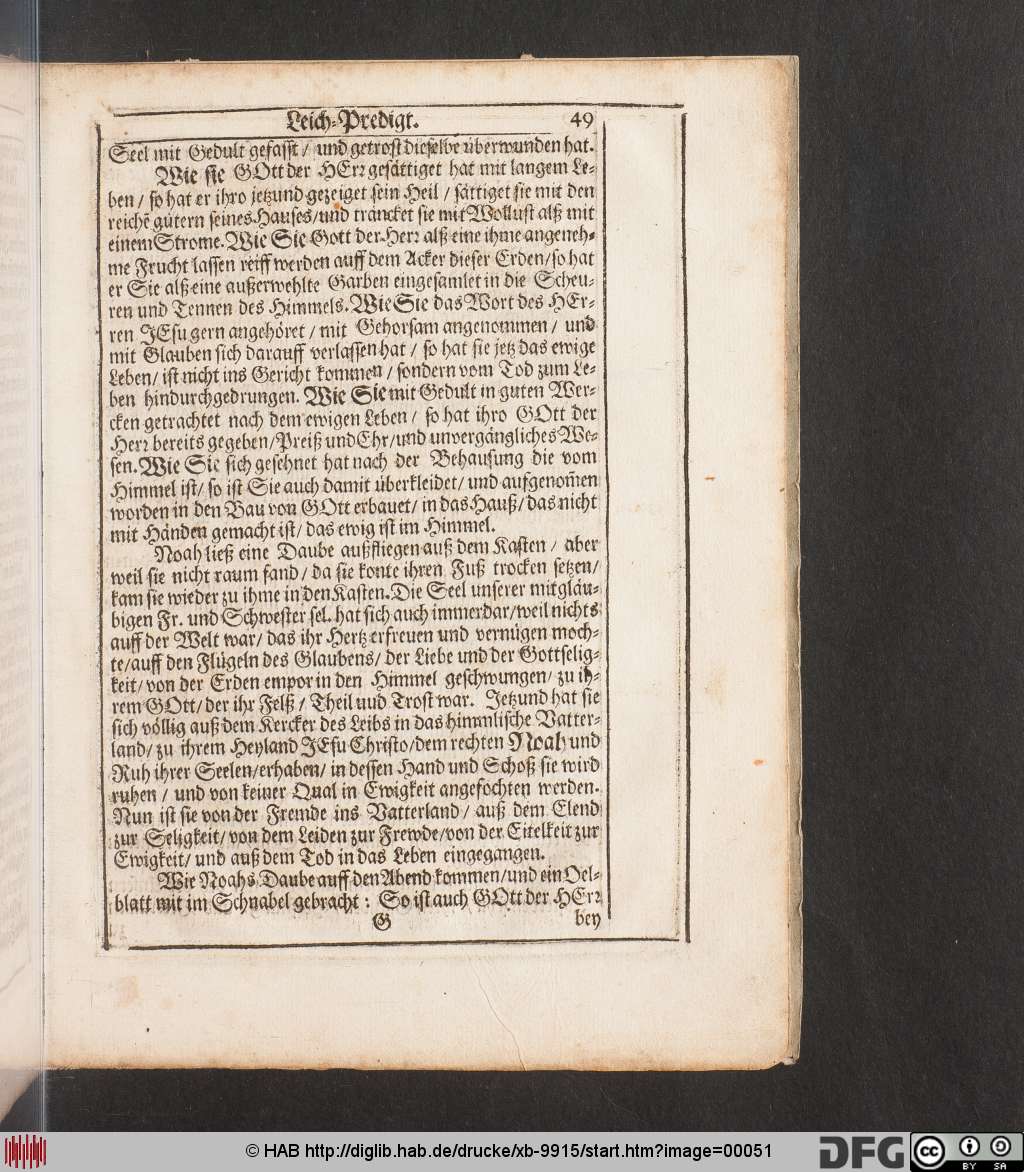 Leich-Predigt. 49
Seel mit Gedult gefasst / und getrost dieselbe überwunden hat.
Wie sie GOtt der HErr gesättiget hat mit langem Le-
ben / so hat er ihro jetzund gezeiget sein Heil / sättiget sie mit den
reichẽ gütern seines Hauses/und träncket sie mit Wollust alß mit
einem Strome. Wie Sie Gott der Herr alß eine ihme angeneh-
me Frucht lassen reiff werden auff dem Acker dieser Erden/so hat
er Sie alß eine außerwehlte Garben eingesamlet in die Scheu-
ren und Tennen des Himmels. Wie Sie das Wort des HEr-
ren JEsu gern angehöret / mit Gehorsam angenommen / und
mit Glauben sich darauff verlassen hat / so hat sie jetz das ewige
Leben/ ist nicht ins Gericht kommen / sondern vom Tod zum Le-
ben hindurchgedrungen. Wie Sie mit Gedult in guten Wer-
cken getrachtet nach dem ewigen Leben / so hat ihro GOtt der
Herr bereits gegeben/Preiß und Ehr/und unvergängliches We-
sen. Wie Sie sich gesehnet hat nach der Behausung die vom
Himmel ist/ so ist Sie auch damit überkleidet/ und aufgenom̃en
worden in den Bau von GOtt erbauet/ in das Hauß/ das nicht
mit Händen gemacht ist/ das ewig ist im Himmel.
Noah ließ eine Daube außfliegen auß dem Kasten / aber
weil sie nicht raum fand/ da sie konte ihren Fuß trocken setzen/
kam sie wieder zu ihme in den Kasten. Die Seel unserer mitgläu-
bigen Fr. und Schwester sel. hat sich auch immerdar/weil nichts
auff der Welt war/ das ihr Hertz erfreuen und vernügen moch-
te/auff den Flügeln des Glaubens/ der Liebe und der Gottselig-
keit/ von der Erden empor in den Himmel geschwungen/ zu ih-
rem GOtt/ der ihr Felß / Theil uud Trost war. Jetzund hat sie
sich völlig auß dem Kercker des Leibs in das himmlische Vatter-
land/ zu ihrem Heyland JEsu Christo/dem rechten Noah und
Ruh ihrer Seelen/erhaben/ in dessen Hand und Schoß sie wird
ruhen / und von keiner Qual in Ewigkeit angefochten werden.
Nun ist sie von der Fremde ins Vatterland / auß dem Elend
zur Seligkeit/ von dem Leiden zur Frewde/von der Eitelkeit zur
Ewigkeit/ und auß dem Tod in das Leben eingegangen.
Wie Noahs Daube auff den Abend kommen/und ein Oel-
blatt mit im Schnabel gebracht : So ist auch GOtt der HErr
G bey
© HAB http://diglib.hab.de/drucke/xb-9915/start.htm?image=00051
DFG cc BY SA